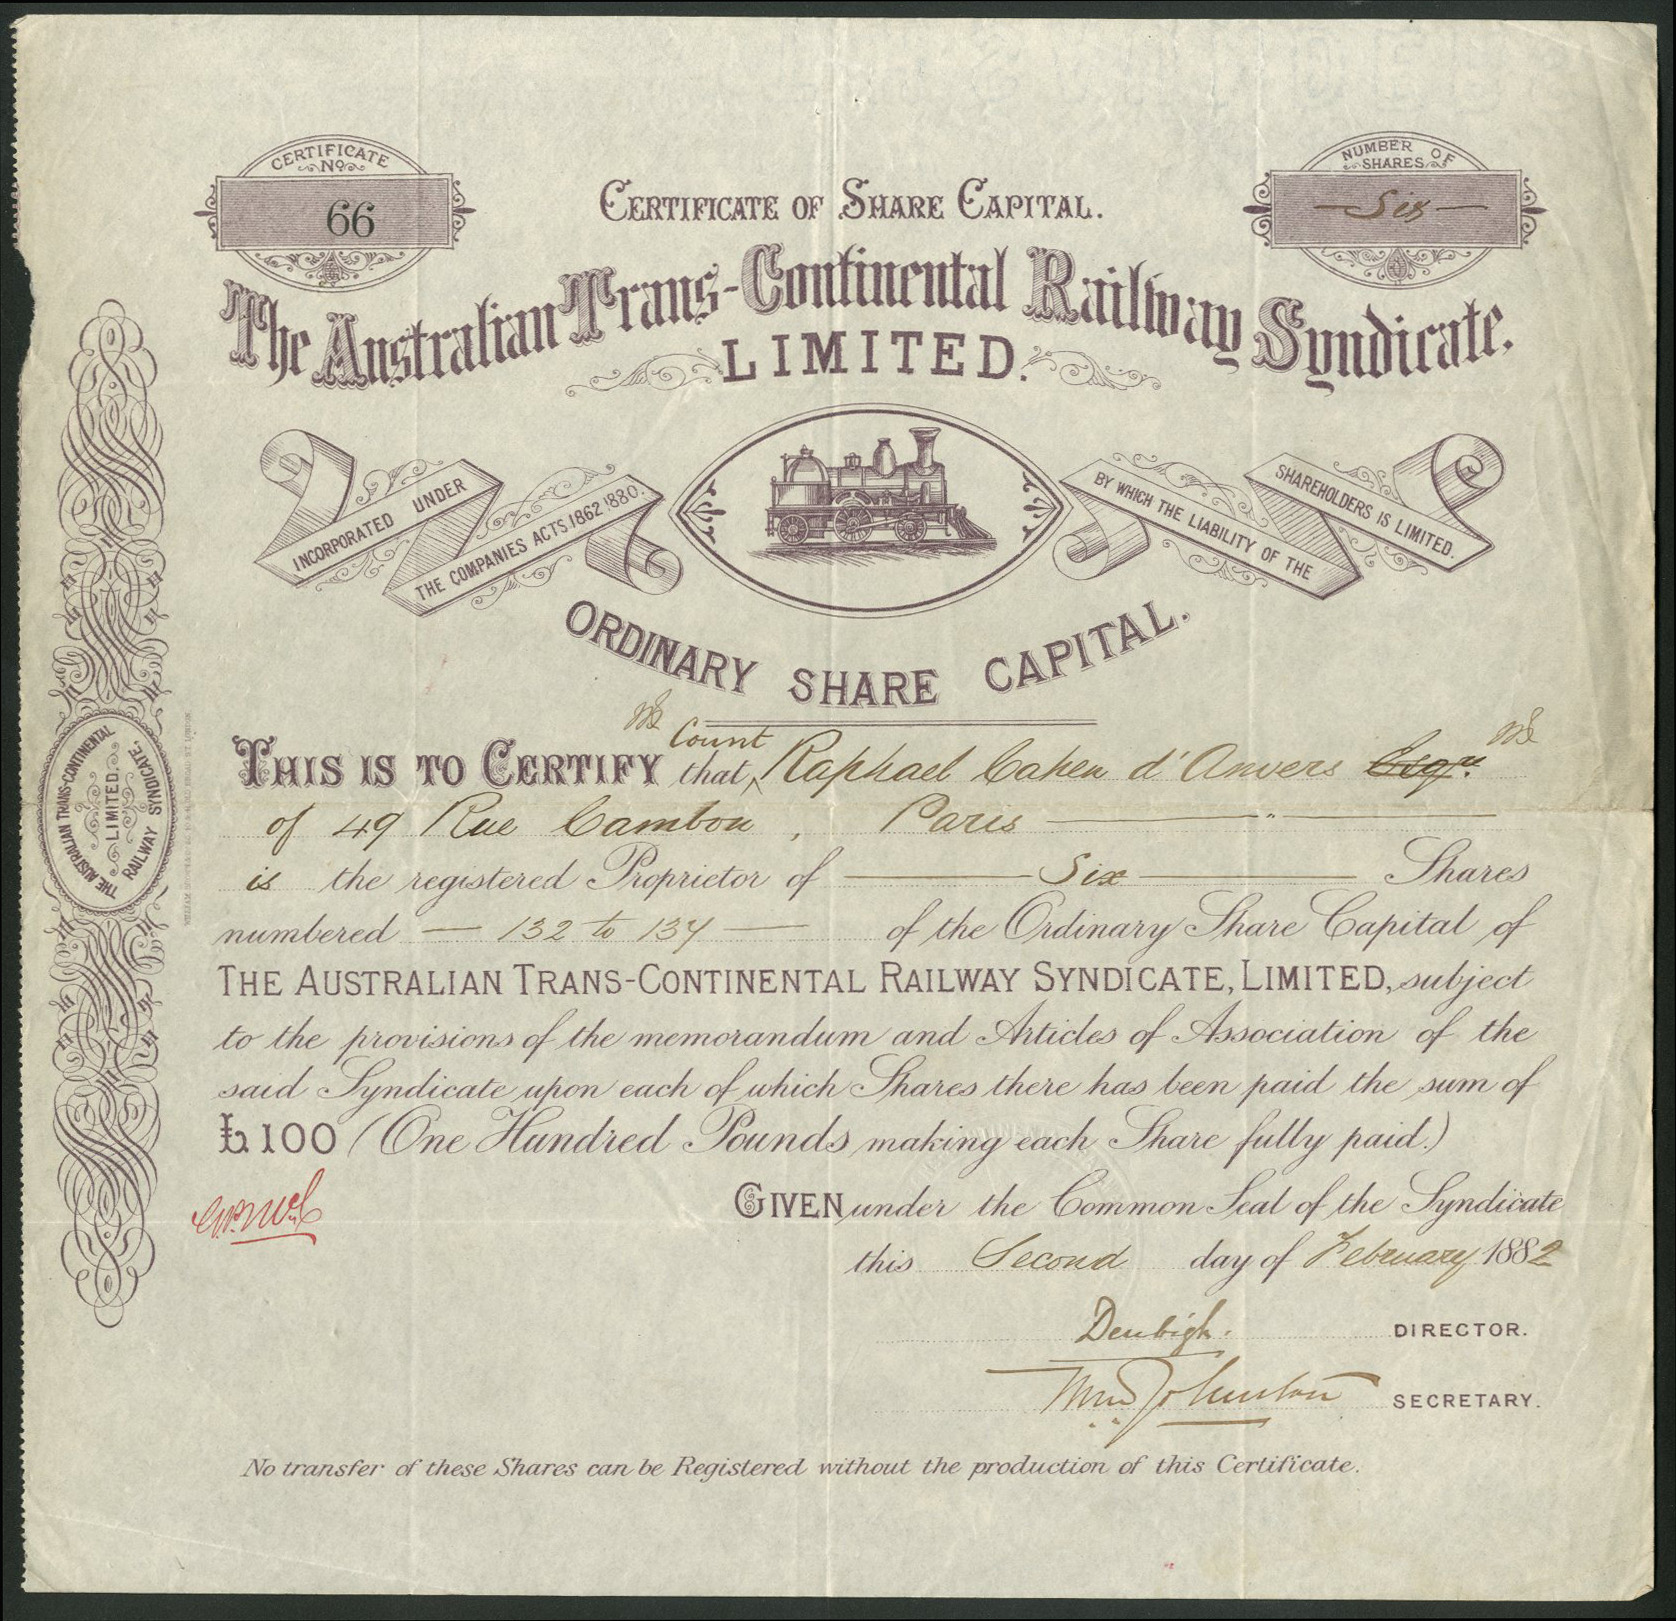 CERTIFICATE
No
66
NUMBER OF
SHARES
— Six —
CERTIFICATE OF SHARE CAPITAL.
The Australian Trans-Continental Railway Syndicate.
LIMITED.
INCORPORATED UNDER
THE COMPANIES ACTS, 1862 1880.
BY WHICH THE LIABILITY OF THE
SHAREHOLDERS IS LIMITED.
ORDINARY SHARE CAPITAL.
THE AUSTRALIAN TRANS-CONTINENTAL
LIMITED.
RAILWAY SYNDICATE.
Count
THIS IS TO CERTIFY that Raphael Cahen d'Anvers Esqre
of 49 Rue Cambon, Paris
is the registered Proprietor of — Six — Shares
numbered — 132 to 137 — of the Ordinary Share Capital of
THE AUSTRALIAN TRANS-CONTINENTAL RAILWAY SYNDICATE, LIMITED, subject
to the provisions of the memorandum and Articles of Association of the
said Syndicate upon each of which Shares there has been paid the sum of
£100 (One Hundred Pounds making each Share fully paid.)
GIVEN under the Common Seal of the Syndicate
this Second day of February 1882
Denbigh. DIRECTOR.
Wm Johnston SECRETARY.
No transfer of these Shares can be Registered without the production of this Certificate.